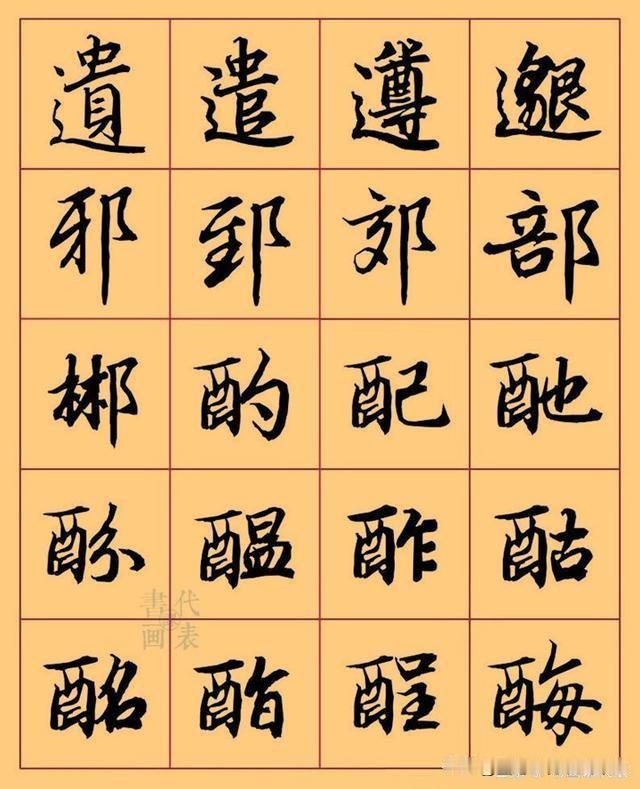 遺 遣 遵 邈
邪 郅 郊 部
郴 酌 配 酏
酚 醖 酢 酤
酩 酯 酲 酶
書 代
画 表